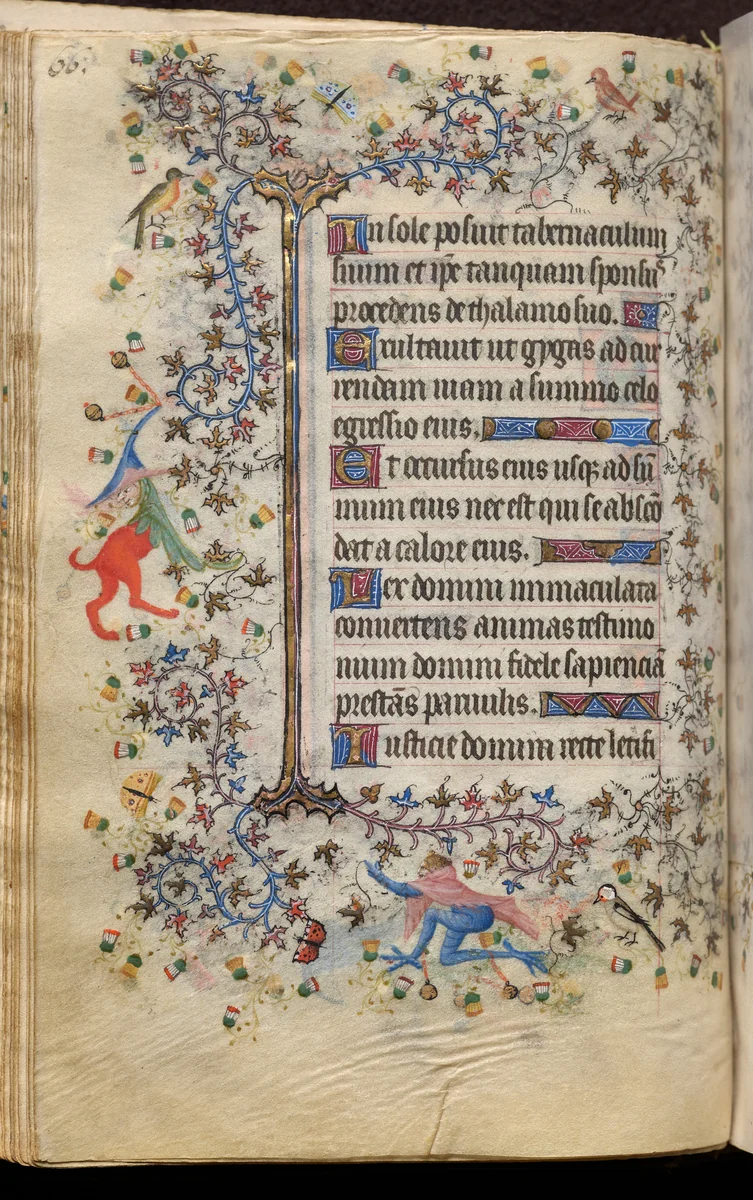 66.
In sole posuit tabernaculum
suum et ip̄e tanquam sponsus
procedens de thalamo suo.
Exultauit ut gygas ad cur
rendam uiam a summo celo
egressio eius.
Et occursus eius usqꝫ ad sū
mum eius nec est qui se abscō
dat a calore eius.
Lex domini immaculata
conuertens animas testimo
nium domini fidele sapienciā
prestās paruulis.
Iusticie domini recte letifi